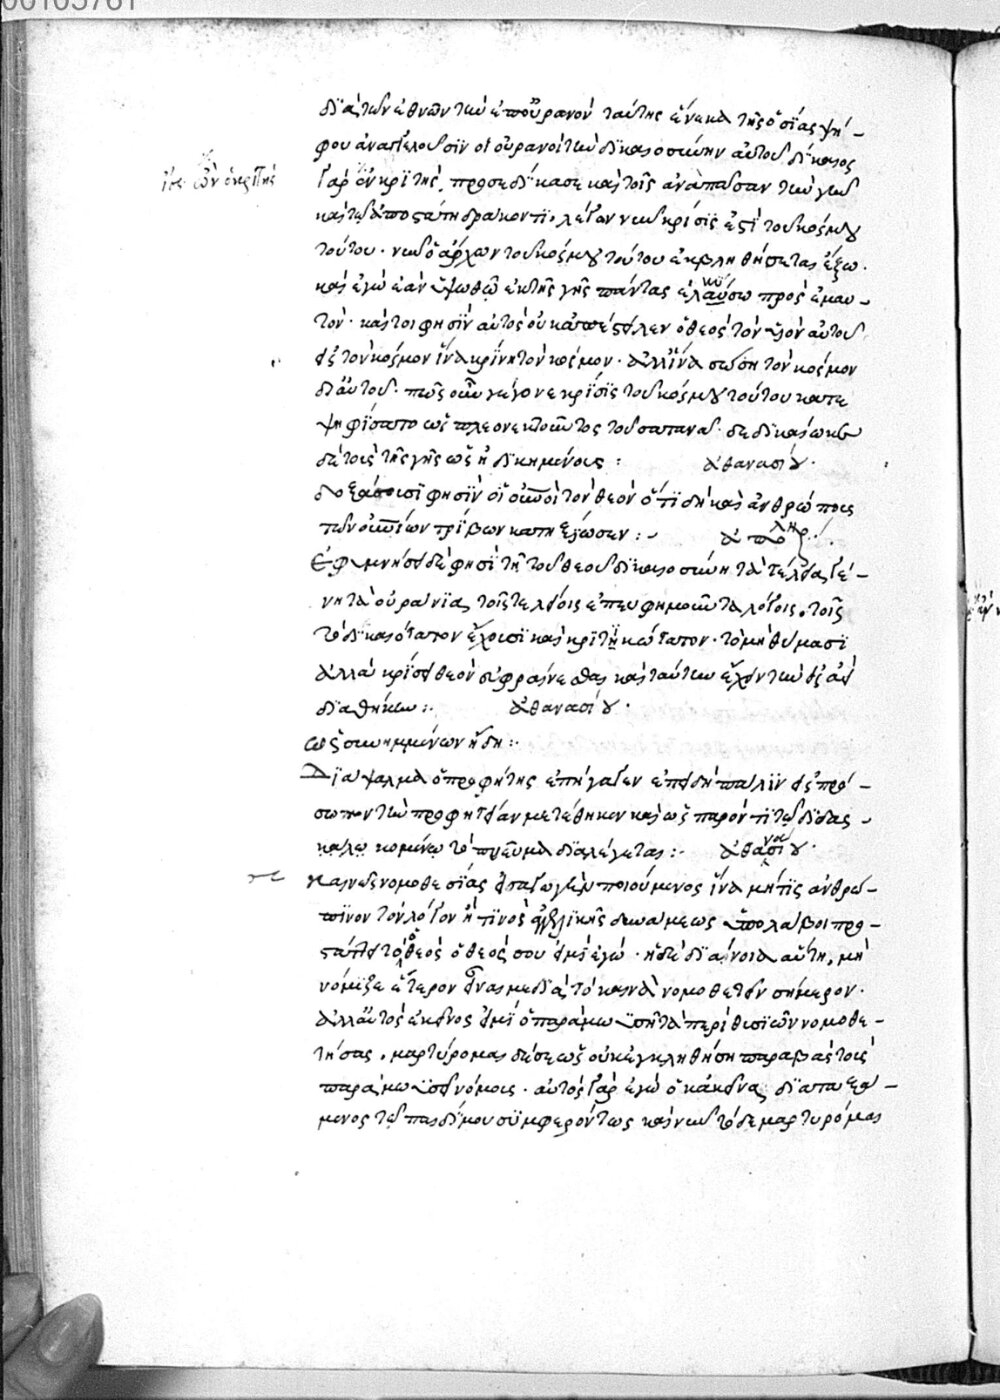 00105761
διὰ τῶν ἐθνῶν τῶν ἐπ' οὐρανόν ταύτης ἕνεκα τῆς ὁσίας ψή-
φου ἀναγγελοῦσιν οἱ οὐρανοὶ τὴν δικαιοσύνην αὐτοῦ δίκαιος
γὰρ ὢν κριτής, προσεδίκασε καὶ τοῖς ἀνὰ πᾶσαν τὴν γῆν
καὶ τῷ ἀποστάτῃ δράκοντι, λέγων νῦν κρίσις ἐστὶ τοῦ κόσμου
τούτου· νῦν ὁ ἄρχων τοῦ κόσμου τούτου ἐκβληθήσεται ἔξω·
καὶ ἐγὼ ἐὰν ὑψωθῶ ἐκ τῆς γῆς πάντας ἑλκύσω πρὸς ἐμαυ-
τόν· καὶ τοι φησὶν αὐτὸς οὐκ ἀπέστειλεν ὁ θεὸς τὸν υἱὸν αὐτοῦ
εἰς τὸν κόσμον ἵνα κρίνῃ τὸν κόσμον· ἀλλ' ἵνα σώσῃ τὸν κόσμον
δι' αὐτοῦ· πῶς οὖν γέγονε κρίσις τοῦ κόσμου τούτου κατε
ψηφίσατο ὡς πλεονεκτοῦντος τοῦ σατανᾶ· δεδικαίωκε
δὲ τοὺς τῆς γῆς ὡς ἠδικημένους: ἀθανασίου·
δοξάσουσι φησὶν οἱ οὐρανοὶ τὸν θεὸν ὅτι δὴ καὶ ἀνθρώπους
τῶν οὐρανίων τρίβων κατηξίωσεν:
Ἐφυμνήσει δέ φησι τῇ τοῦ θεοῦ δικαιοσύνῃ τὰ τέλεια γέ-
νη τὰ οὐράνια, τοῖς τελείοις ἐπευφημοῦντα λόγοις, τοῖς
τὸ δικαιότατον ἔχουσι καὶ κριτικώτατον· τὸ μὴ θύμασι
ἀλλὰ κρίσει θεὸν εὐφραίνεσθαι καὶ ταύτην ἔχειν τὴν εἰς ἀεὶ
διαθήκην: ἀθανασίου·
ὡς συνημμένων ἤδη:
Διάψαλμα ὁ προφήτης ἐπήγαγεν ἐπειδὴ πάλιν εἰς πρό-
σωπον τὴν προφητείαν μετέθηκεν καὶ ὡς παρόντι τῷ
καλουμένῳ τὸ πνεῦμα διαλέγεται: ἀθανασίου·
καινῆς νομοθεσίας εἰσαγωγὴν ποιούμενος ἵνα μή τις ἀνθρώ-
πινον τὸν λόγον ἤ τινος ἀγγελικῆς δυνάμεως ὑπολάβοι προ-
στάττει τὸ θεὸς ὁ θεός σου εἰμὶ ἐγώ· ἡ δὲ διάνοια αὕτη, μὴ
νόμιζε ἕτερον εἶναί με διὰ τὸ καινὰ νομοθετεῖν σήμερον·
ἀλλ' αὐτὸς ἐκεῖνος εἰμὶ ὁ παρὰ μωϋσῇ τὰ περὶ θυσιῶν νομοθε-
τήσας, μαρτύρομαί δέ σε ὡς οὐκ ἐγκληθήσῃ παραβὰς τοὺς
παρὰ μωϋσεῖ νόμους· αὐτὸς γὰρ ἐγὼ ὁ κἀκεῖνα
μενος τῷ παιδί μου συμφερόντως καὶ νῦν τὸ δε μαρτύρομαι